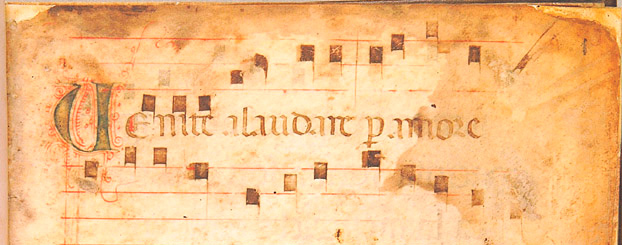 UEnite alaudare ꝑ amore